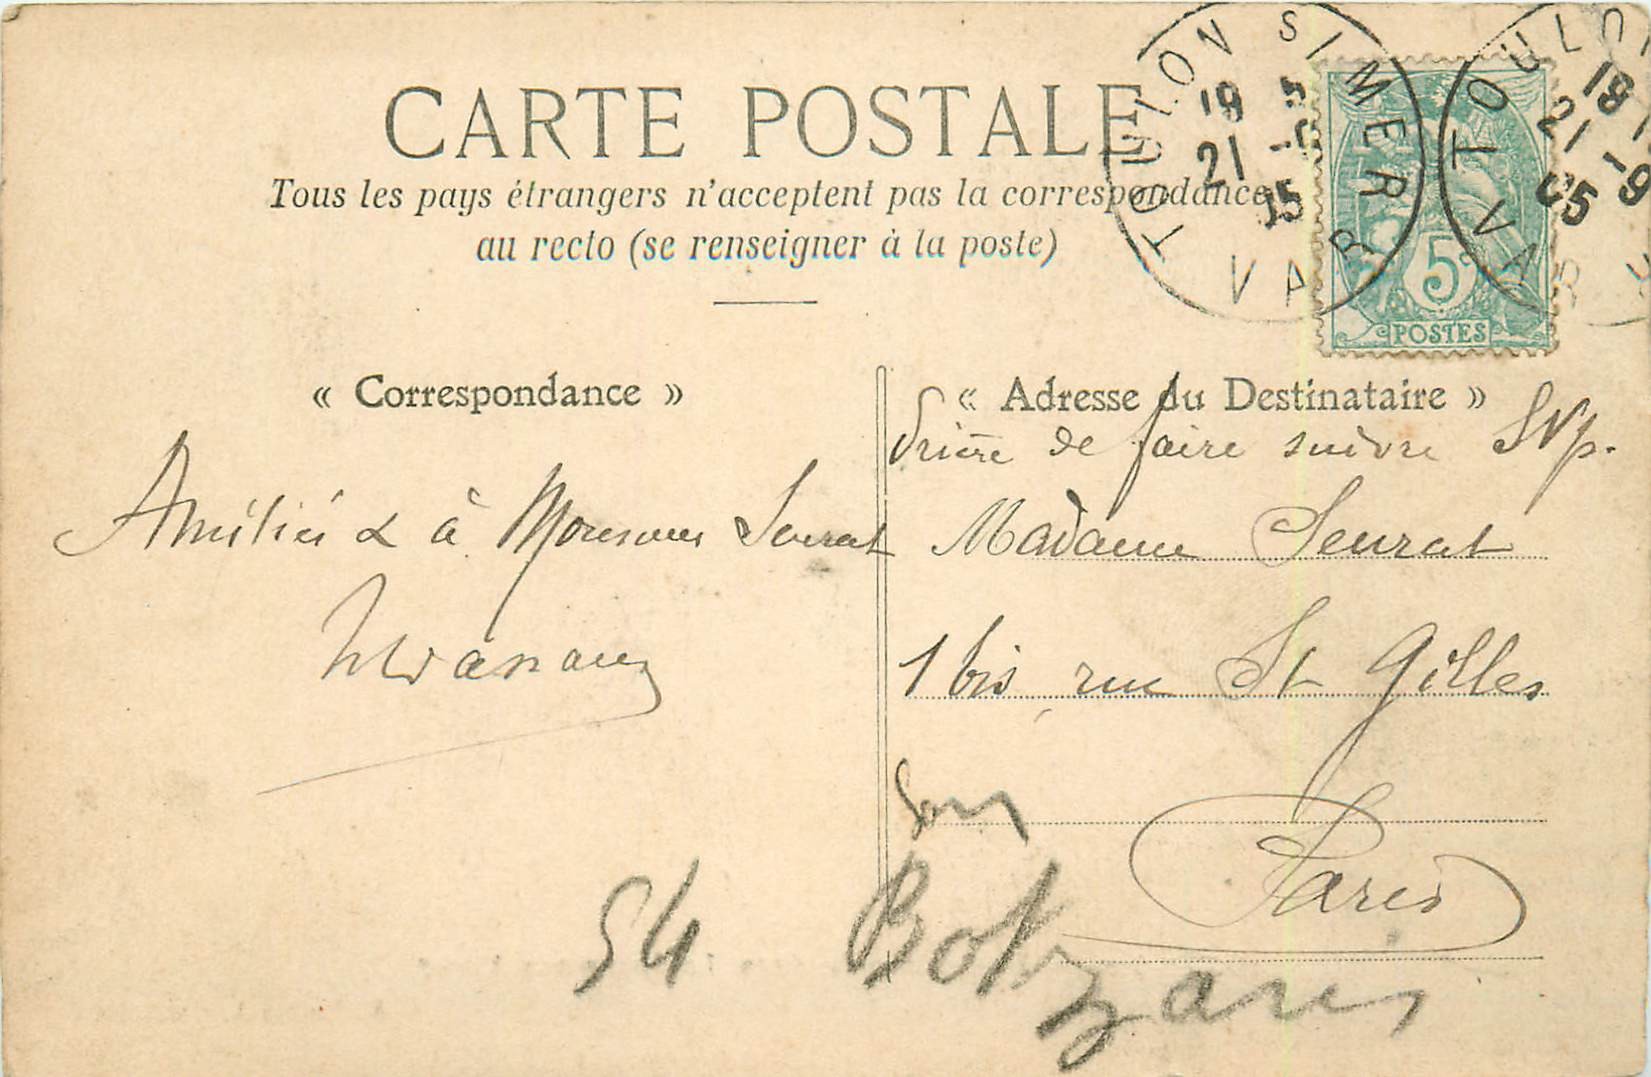 CARTE POSTALE
Tous les pays étrangers n'acceptent pas la correspondance
au recto (se renseigner à la poste)
TOULON S MER
VAR
19
21
05
TOULON
VAR
18
21 -9
05
5c
POSTES
« Correspondance »
Amitiés & à Monsieur Seurat
« Adresse du Destinataire »
Prière de faire suivre SVp.
Madame Seurat
1 bis rue St Gilles
Paris
54 Botzaris